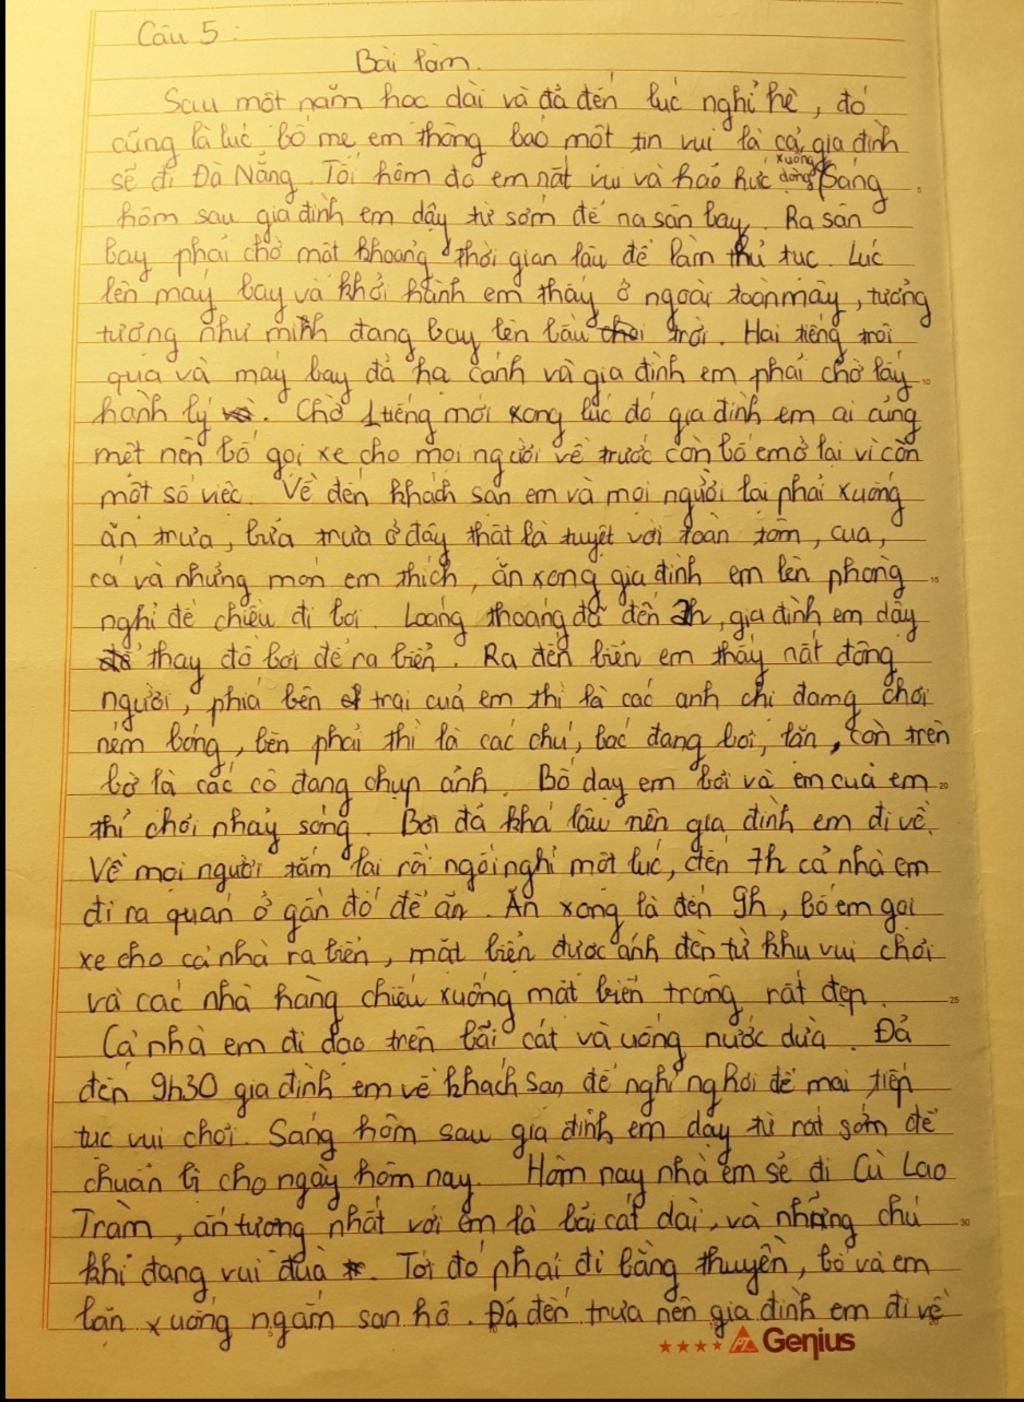 Câu 5 :
Bài làm.
Sau một năm học dài và đã đến lúc nghỉ hè, đó
cũng là lúc bố mẹ em thông báo một tin vui là cả gia đình
sẽ đi Đà Nẵng. Tối hôm đó em rất vui và háo hức xuống dòng Sáng
hôm sau gia đình em dậy từ sớm để na sân bay. Ra sân
bay phải chờ một khoảng thời gian lâu để làm thủ tục. Lúc
lên máy bay và khởi hành em thấy ở ngoài toàn mây, tưởng
tượng như mình đang bay lên bầu trời. Hai tiếng trôi
qua và máy bay đã hạ cánh và gia đình em phải chờ lấy
hành lý. Chờ 1 tiếng mới xong lúc đó gia đình em ai cũng
mệt nên bố gọi xe cho mọi người về trước còn bố em ở lại vì còn
một số việc. Về đến khách sạn em và mọi người lại phải xuống
ăn trưa, bữa trưa ở đây thật là tuyệt vời toàn tôm, cua,
cá và những món em thích, ăn xong gia đình em lên phòng
nghỉ để chiều đi bơi. Loáng thoáng đã đến 2h, gia đình em dậy
thay đồ bơi để ra biển. Ra đến biển em thấy nất đông
người, phía bên trái của em thì là các anh chị đamg chơi
ném bóng, bên phải thì là các chú, bác đang bơi, lặn, còn trên
bờ là các cô đang chụp ảnh. Bố dạy em bơi và em của em
thì chơi nhảy sóng. Bơi đã khá lâu nên gia đình em đi về.
Về mọi người tắm lại rồi ngồi nghỉ một lúc, đến 7h cả nhà em
đi ra quán ở gần đó để ăn. Ăn xong là đến 9h, bố em gọi
xe cho cả nhà ra biển, mặt biển được ánh đèn từ khu vui chơi
và các nhà hàng chiếu xuống mặt biển trông rất đẹp.
Cả nhà em đi dạo trên bãi cát và uống nước dừa. Đã
đến 9h30 gia đình em về khách sạn để nghỉ ngơi để mai tiếp
tục vui chơi. Sáng hôm sau gia đình em dậy từ rất sớm để
chuẩn bị cho ngày hôm nay. Hôm nay nhà em sẽ đi Cù Lao
Tràm, ấn tượng nhất với em là bãi cát dài, và những chú
khỉ đang vui đùa. Tới đó phải đi bằng thuyền, bố và em
lặn xuống ngắm san hô. Đã đến trưa nên gia đình em đi về
PT Genius